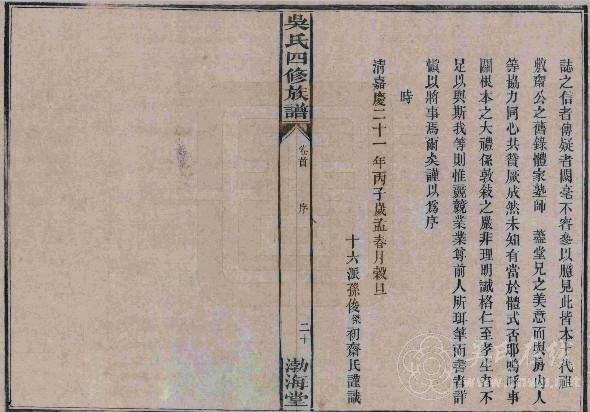 誌之信者傳疑者闕毫不容參以臆見此皆本十代祖
敷齋公之舊錄體家塾師 藎堂兄之美意而與房內人
等協力同心共贊厥成然未知有當於體式否耶嗚呼事
關根本之大禮係敦敍之嚴非理明識格仁至孝生者不
足以與斯我等則惟兢兢業業尊前人所珥筆而書者詳
愼以將事焉爾矣謹以爲序
時
清嘉慶二十一年丙子歲孟春月穀旦
十六派孫俊傑初齋氏謹識
吳氏四修族譜
卷首 序
二十
渤海堂